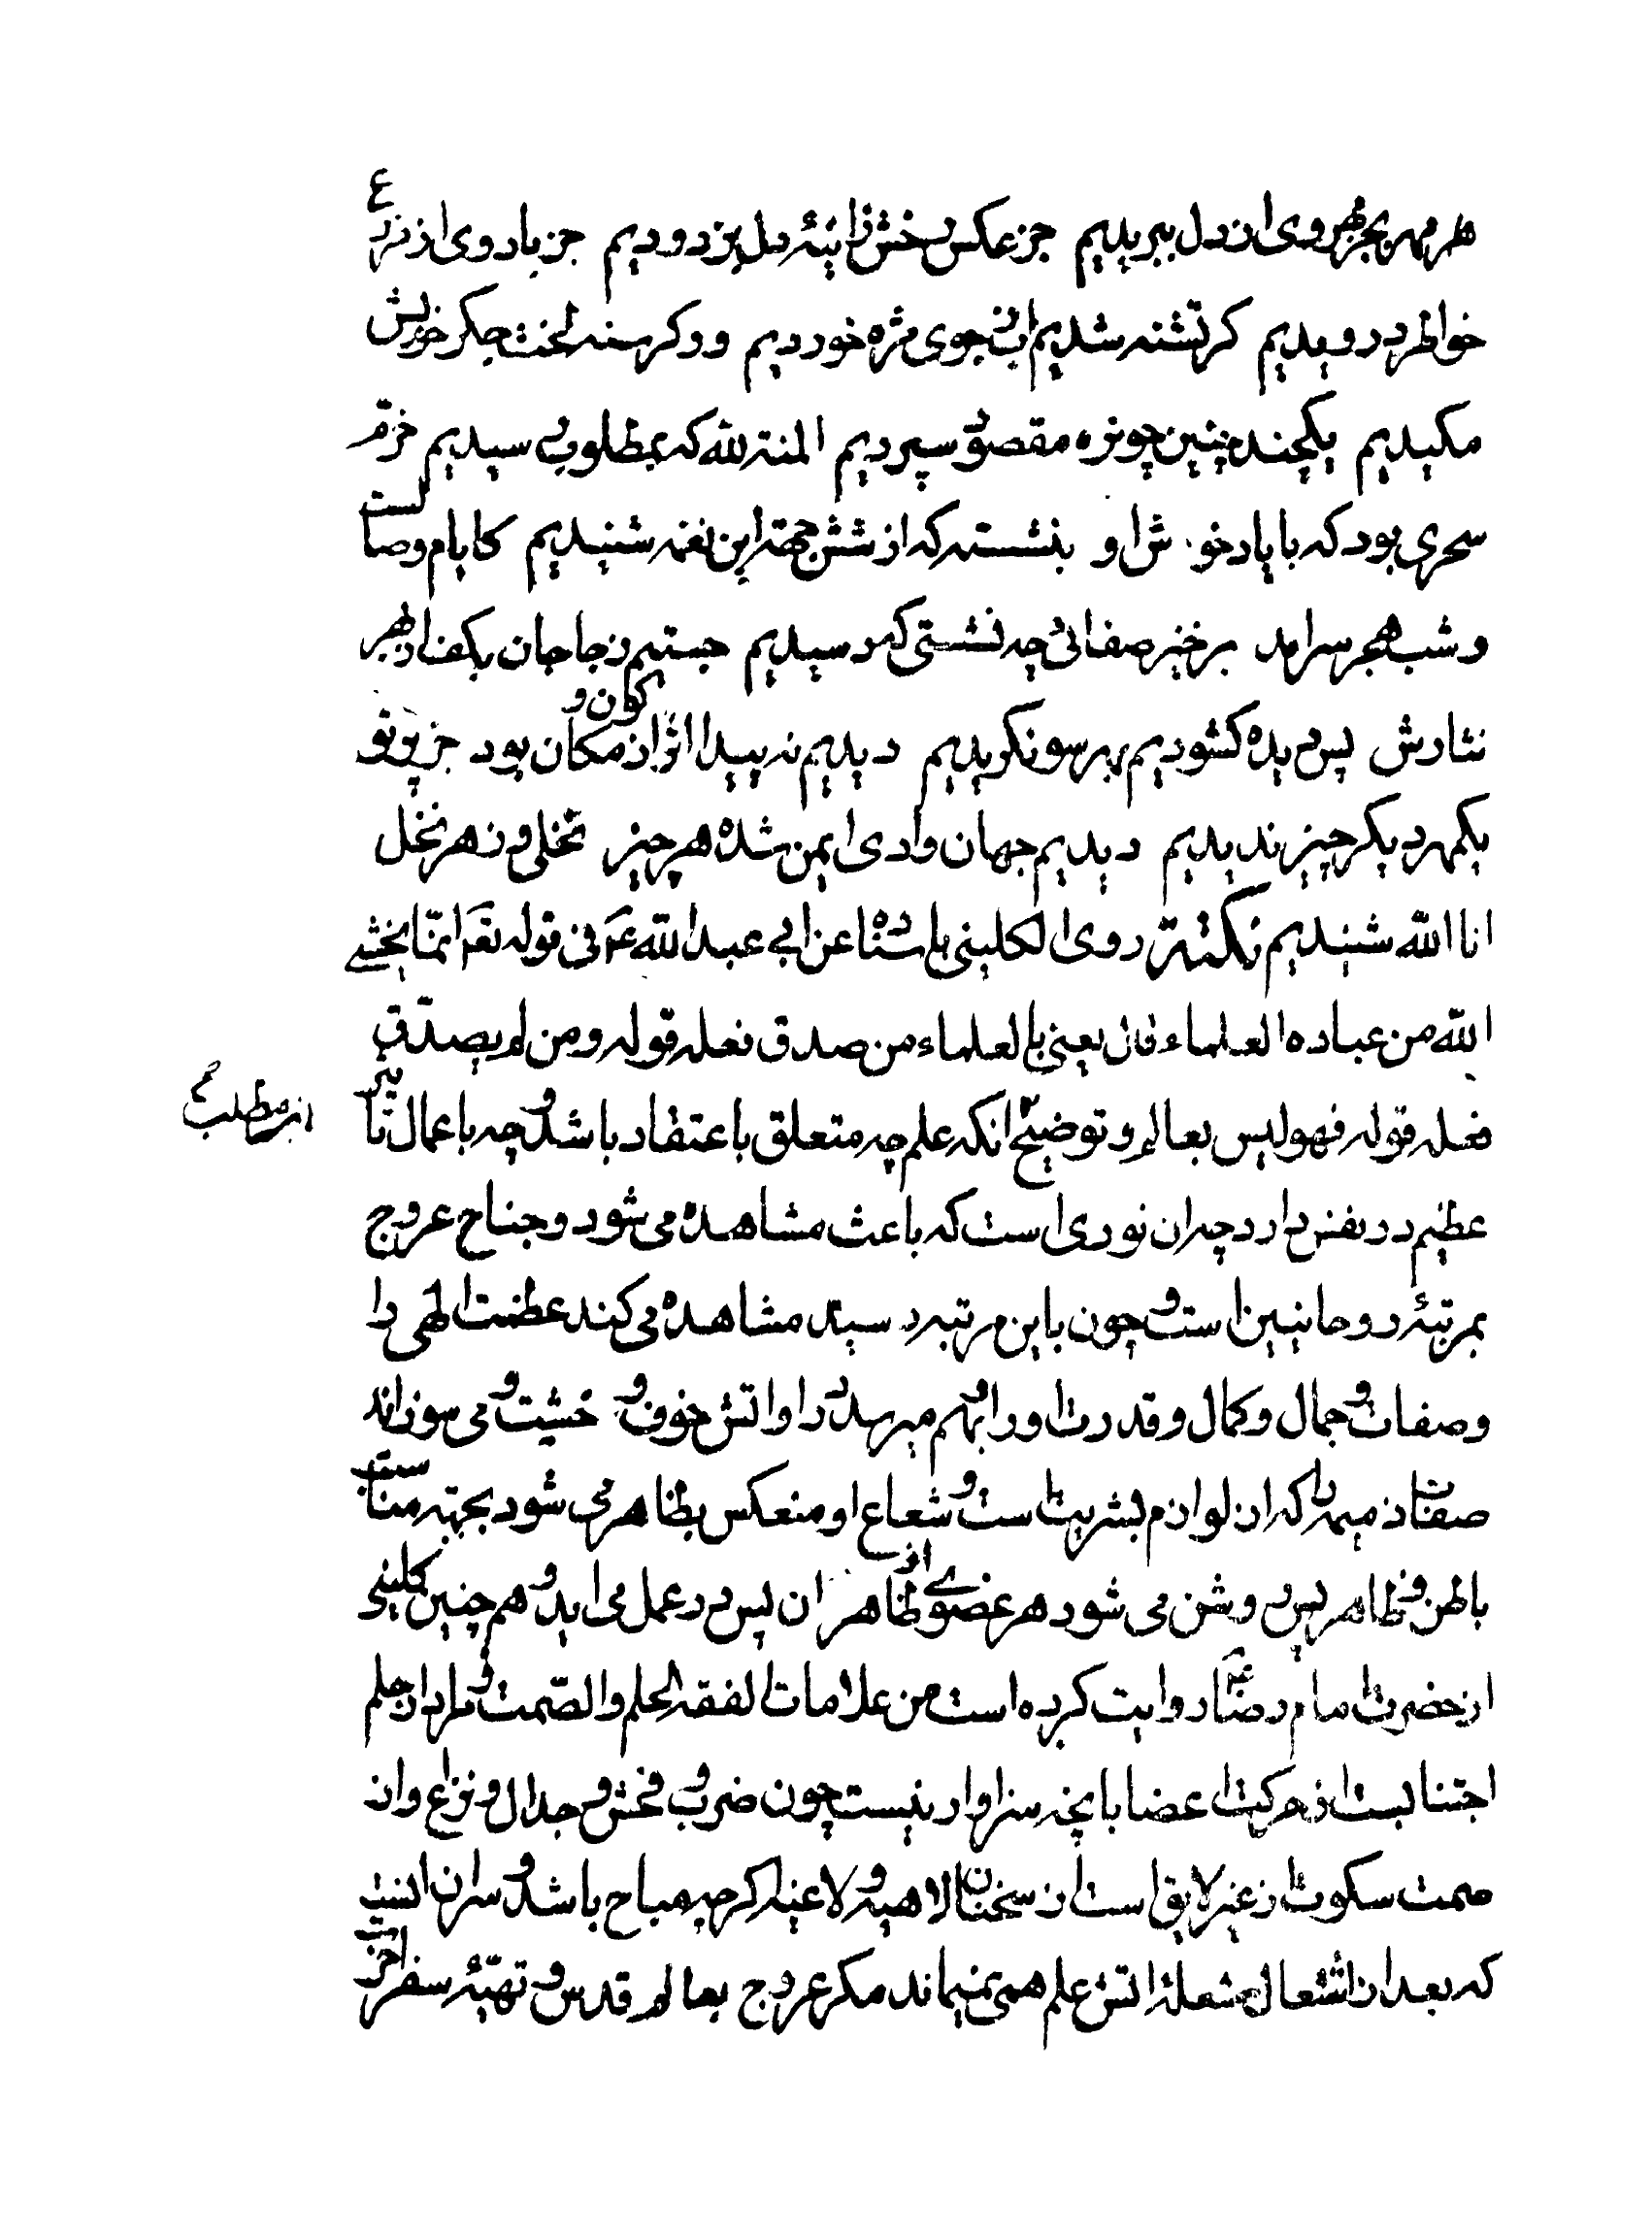 هر مهر بجز مهر وی از دل ببریدیم جز عکس رخش زاینهٔ دل بزدودیم جز یاد وی از مزرع
خواطر درویدیم کر تشنه شدیم اب ز جوی مژه خوردیم ور کرسنه لخت جکر خویش
مکیدیم یکچند چنین چون ره مقصود سپردیم المنته لله که بمطلوب رسیدیم خرم
سحری بود که با یاد خوش او بنشسته که از شش جهته این نغمه شنیدیم کایام وصالست
و شب هجر سرامد برخیز صفائی چه نشستی که رسیدیم جستیم ز جا جان بکف از بهر
نثارش پس دیده کشودیم بهر سو نکریدیم دیدیم نه پیدا اثر از کون و مکان بود جز پرتو
یکمهر دیکر چیز ندیدیم دیدیم جهان وادی ایمن شده هر چیز نخلی و ز هر نخل
انا الله شنیدیم نکتة روی الکلینی باسناده عن ابی عبد الله ع فی قوله تعم انما یخشی
الله من عباده العلماء قال یعنی بالعلماء من صدق فعله قوله و من لم یصدق
فعله قوله فهو لیس بعالم و توضیح انکه علم چه متعلق باعتقاد باشد و چه باعمال تاثیر
این مطلب
عظیم در نفس دارد چه ان نوری است که باعث مشاهده می شود و جناح عروج
بمرتبهٔ روحانیین است و چون باین مرتبه رسید مشاهده می کند عظمت الهی را
و صفات و جمال و کمال و قدرت او را و بهم میرسد در او اتش خوف و خشیت و می سوزاند
صفات ذمیمه را که از لوازم بشریت است و شعاع او منعکس بظاهر می شود بجهته مناسبت
باطن و ظاهر پس روشن می شود هر عضوی از ظاهر ان پس در عمل می اید و هم چنین کلینی
از حضرت امام رضا ع روایت کرده است من علامات الفقه الحلم و الصمت و مراد از حلم
اجتنابست از حرکت اعضا بانچه سزاوار نیست چون ضرب و فحش و جدال و نزاع و از
صمت سکوت از غیر لایق است از سخنان لاهیه و لاغیه اکر چه مباح باشد و سر ان انست
که بعد از اشتعال مشعلهٔ اتش علم همی نمیماند مکر عروج بعالم قدس و تهیهٔ سفر اخرت